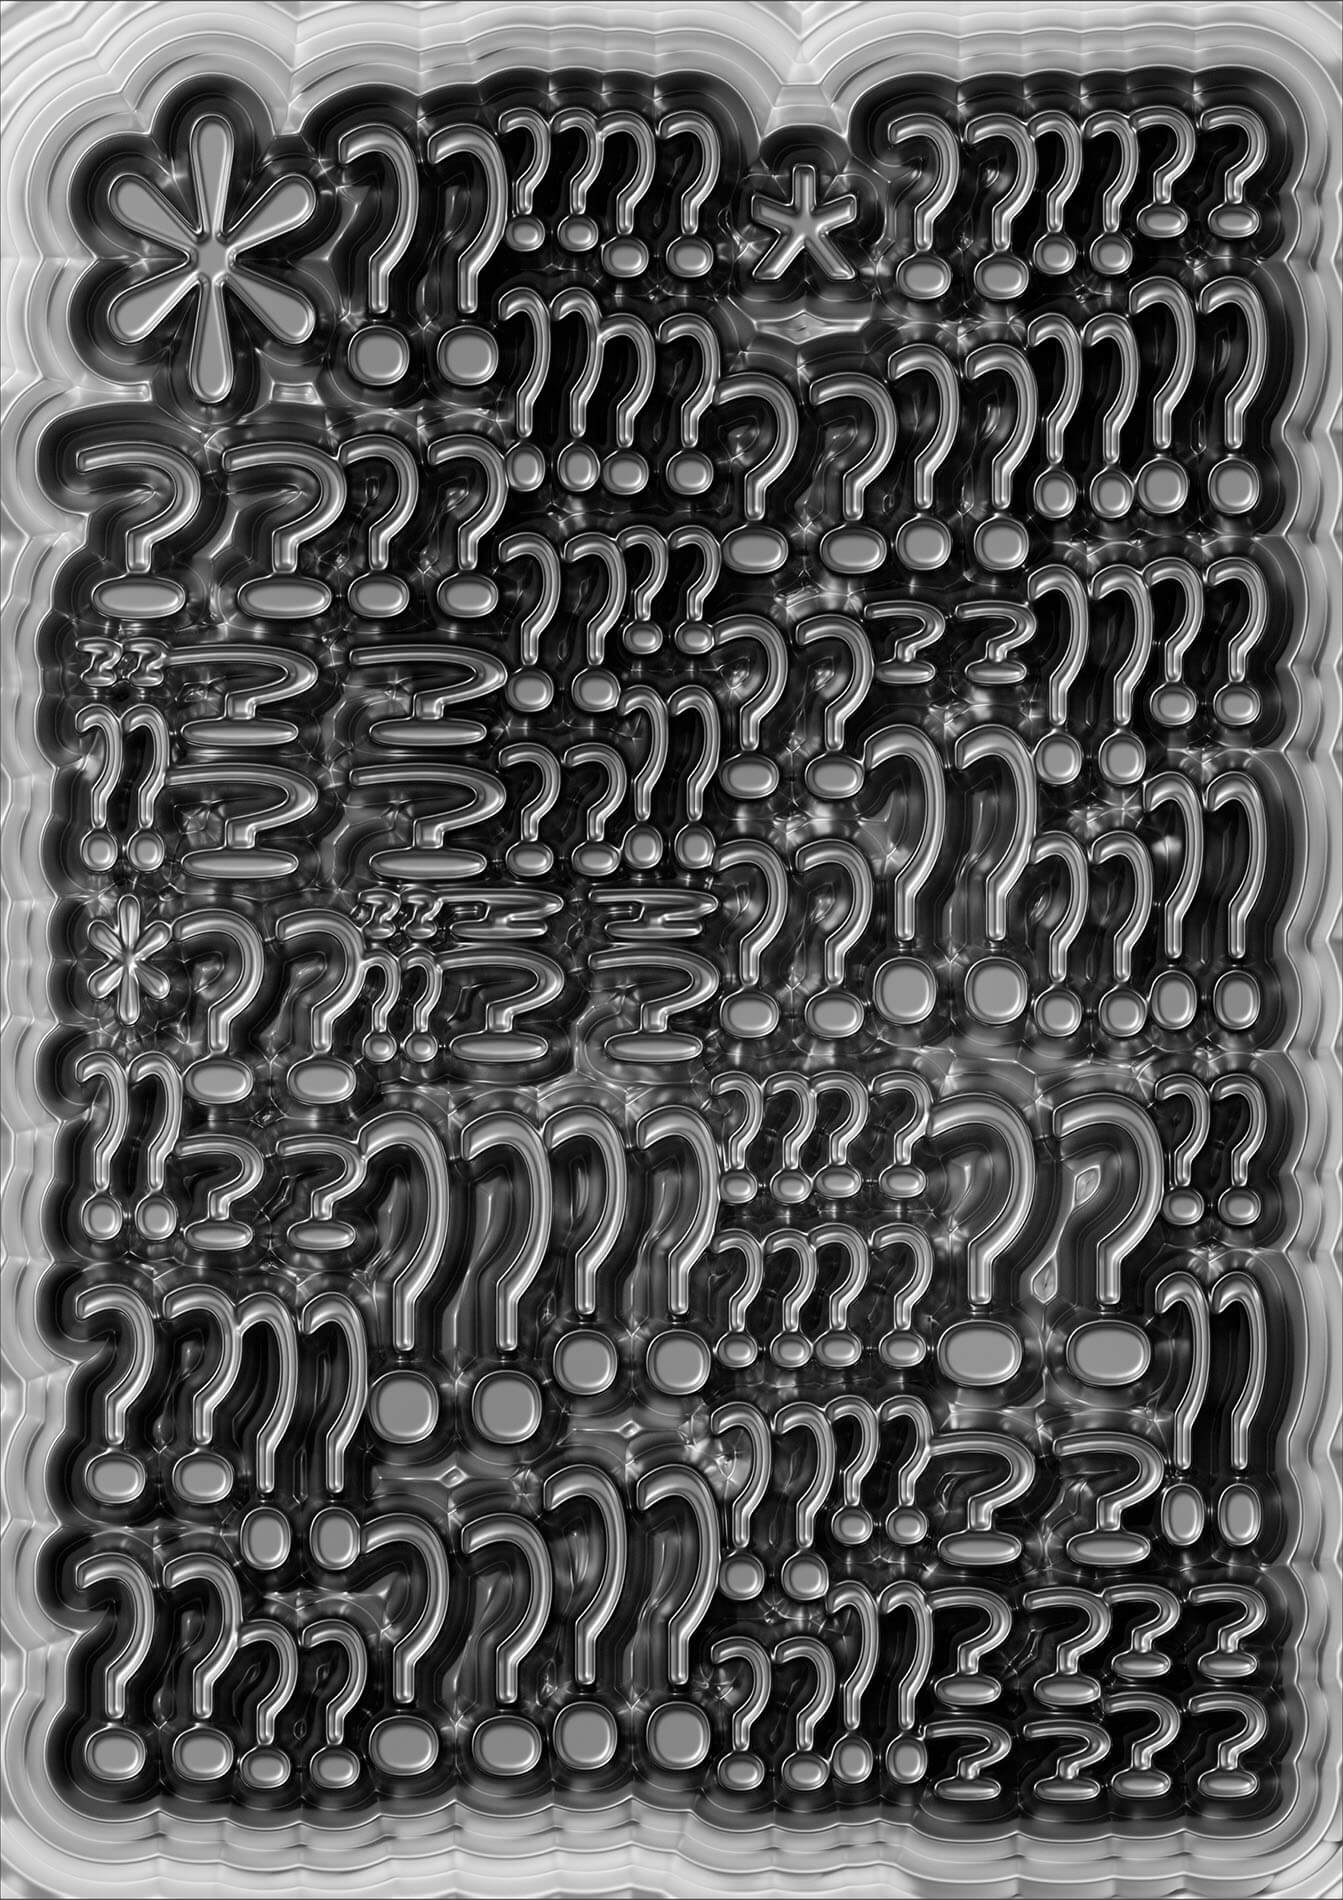 * ?? ?? ?? * ?? ?? ??
?? ?? ?? ?? ?? ??
?? ?? ?? ?? ?? ?? ?? ??
?? ??
?? ?? ?? ?? ?? ?? ?? ??
* ?? ?? ??
?? ??
?? ?? ?? ?? ?? ?? ?? ??
?? ??
?? ?? ?? ?? ?? ??
?? ?? ?? ?? ?? ?? ?? ??
?? ??